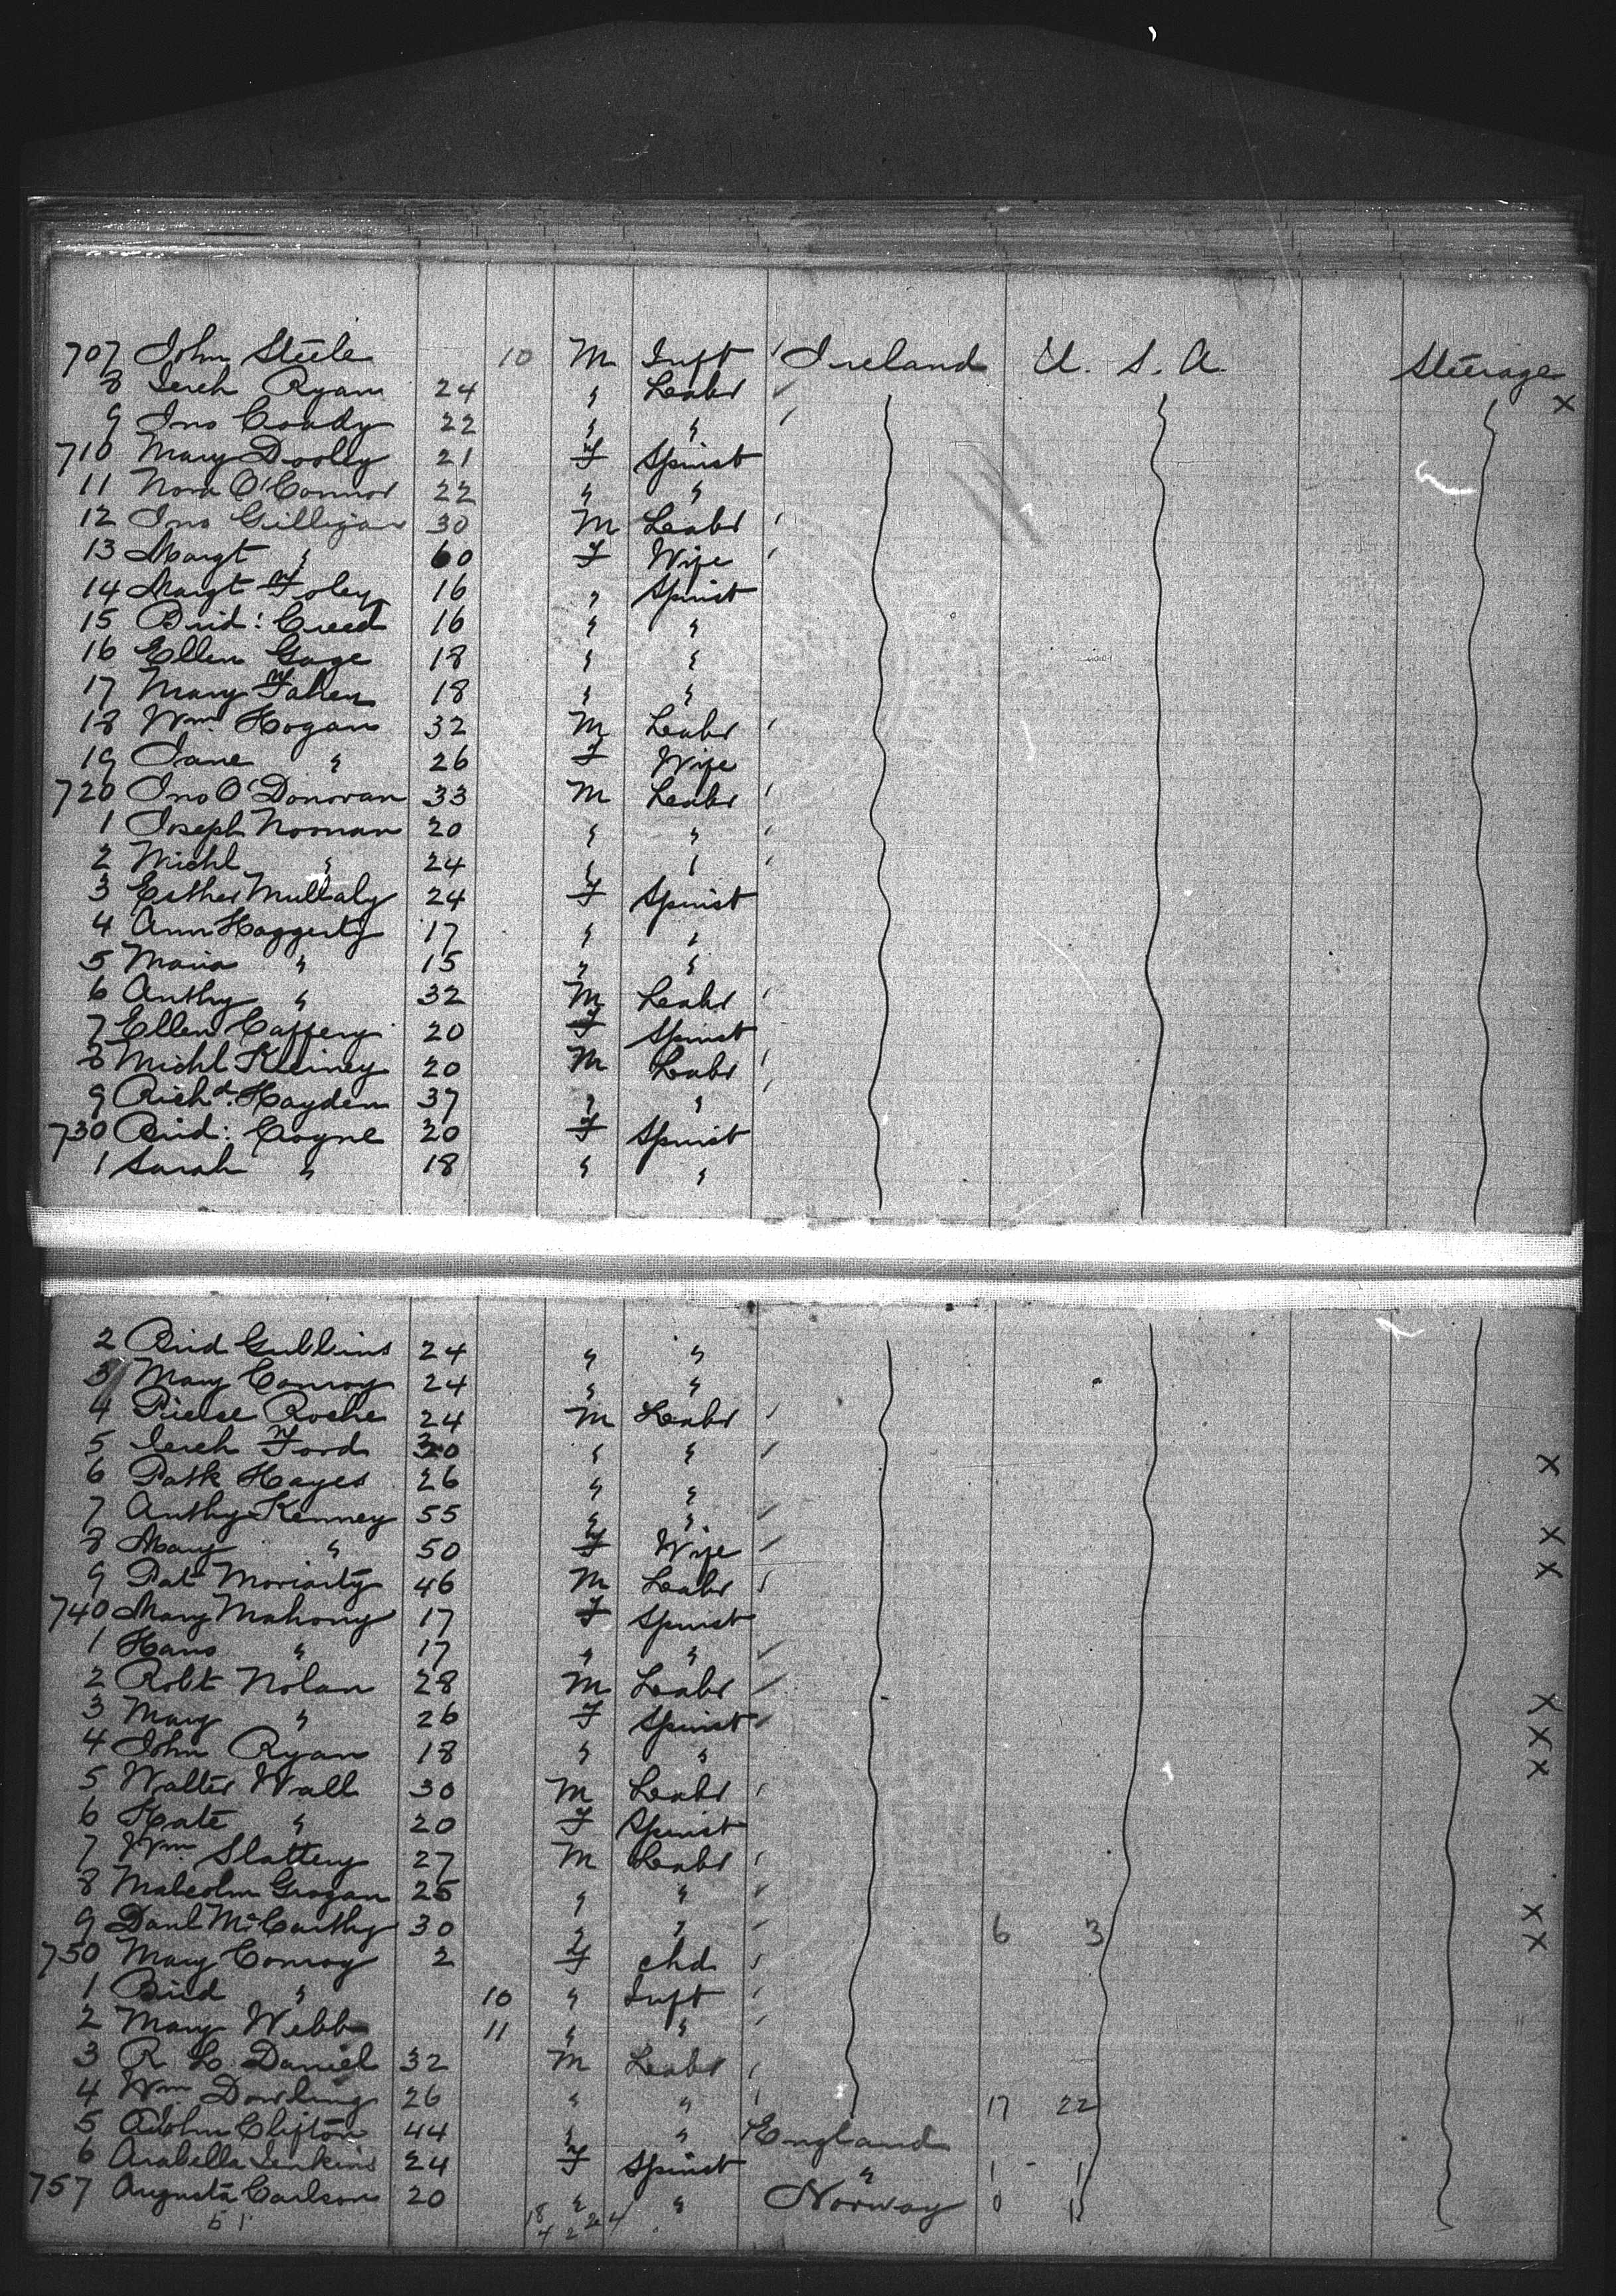 707 John Steele 10 M Inft Ireland U. S. A. Steerage
8 Jereh Ryan 24 " Labr x
9 Jno Coady 22 " "
710 Mary Dooley 21 F Spinst
11 Nora O'Connor 22 " "
12 Jno Gilligan 30 M Labr
13 Margt " 60 F Wife
14 Margt Foley 16 " Spinst
15 Brid: Creed 16 " "
16 Ellen Gage 18 " "
17 Mary Fahey 18 " "
18 Wm. Hogan 32 M Labr
19 Jane " 26 F Wife
720 Jno O'Donovan 33 M Labr
1 Joseph Noonan 20 " "
2 Michl " 24 " "
3 Esther Mullaly 24 F Spinst
4 Ann Haggerty 17 " "
5 Maria " 15 " "
6 Anthy " 32 M Labr
7 Ellen Caffery 20 F Spinst
8 Michl Keiney 20 M Labr
9 Richd. Hayden 37 " "
730 Brid: Coyne 20 F Spinst
1 Sarah " 18 " "
2 Brid Gubbins 24 " "
3 Mary Conroy 24 " "
4 Pierse Roche 24 M Labr
5 Jereh Ford 30 " " x
6 Patk Hayes 26 " "
7 Anthy Kenney 55 " " x
8 Mary " 50 F Wife x
9 Pat Moriarty 46 M Labr
740 Mary Mahony 17 F Spinst
1 Hans " 17 " "
2 Robt Nolan 28 M Labr x
3 Mary " 26 F Spinst x
4 John Ryan 18 " " x
5 Walter Wall 30 M Labr
6 Kate " 20 F Spinst
7 Wm Slattery 27 M Labr
8 Malcolm Grogan 25 " " x
9 Danl McCarthy 30 " " 6 3 x
750 Mary Conroy 2 F chd
1 Brid " 10 " Inft
2 Mary Webb 11 " "
3 R L Daniel 32 M Labr
4 Wm Dowling 26 " " 17 22
5 John Clifton 44 " " England
6 Arabella Jenkins 24 F Spinst " 1 - 1
757 Augusta Carlson 20 " " Norway 0
51 18 4 2 2 4